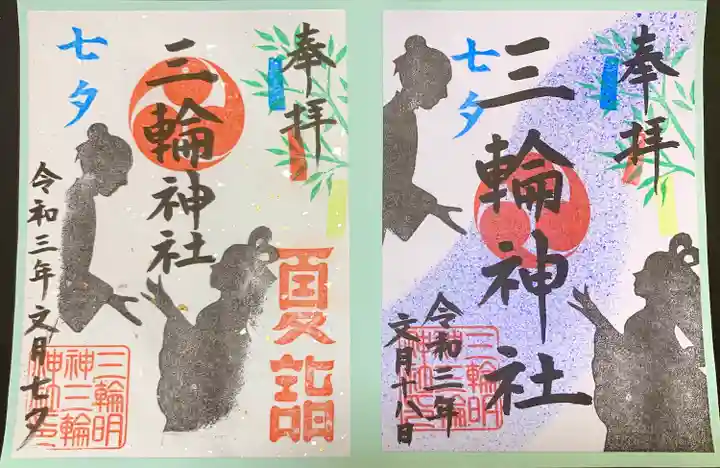 奉拝
三輪神社
七夕
令和三年文月七夕
夏詣
三輪明
神三輪
神社印
奉拝
三輪神社
七夕
令和三年
文月十八日
三輪明
神三輪
神社印